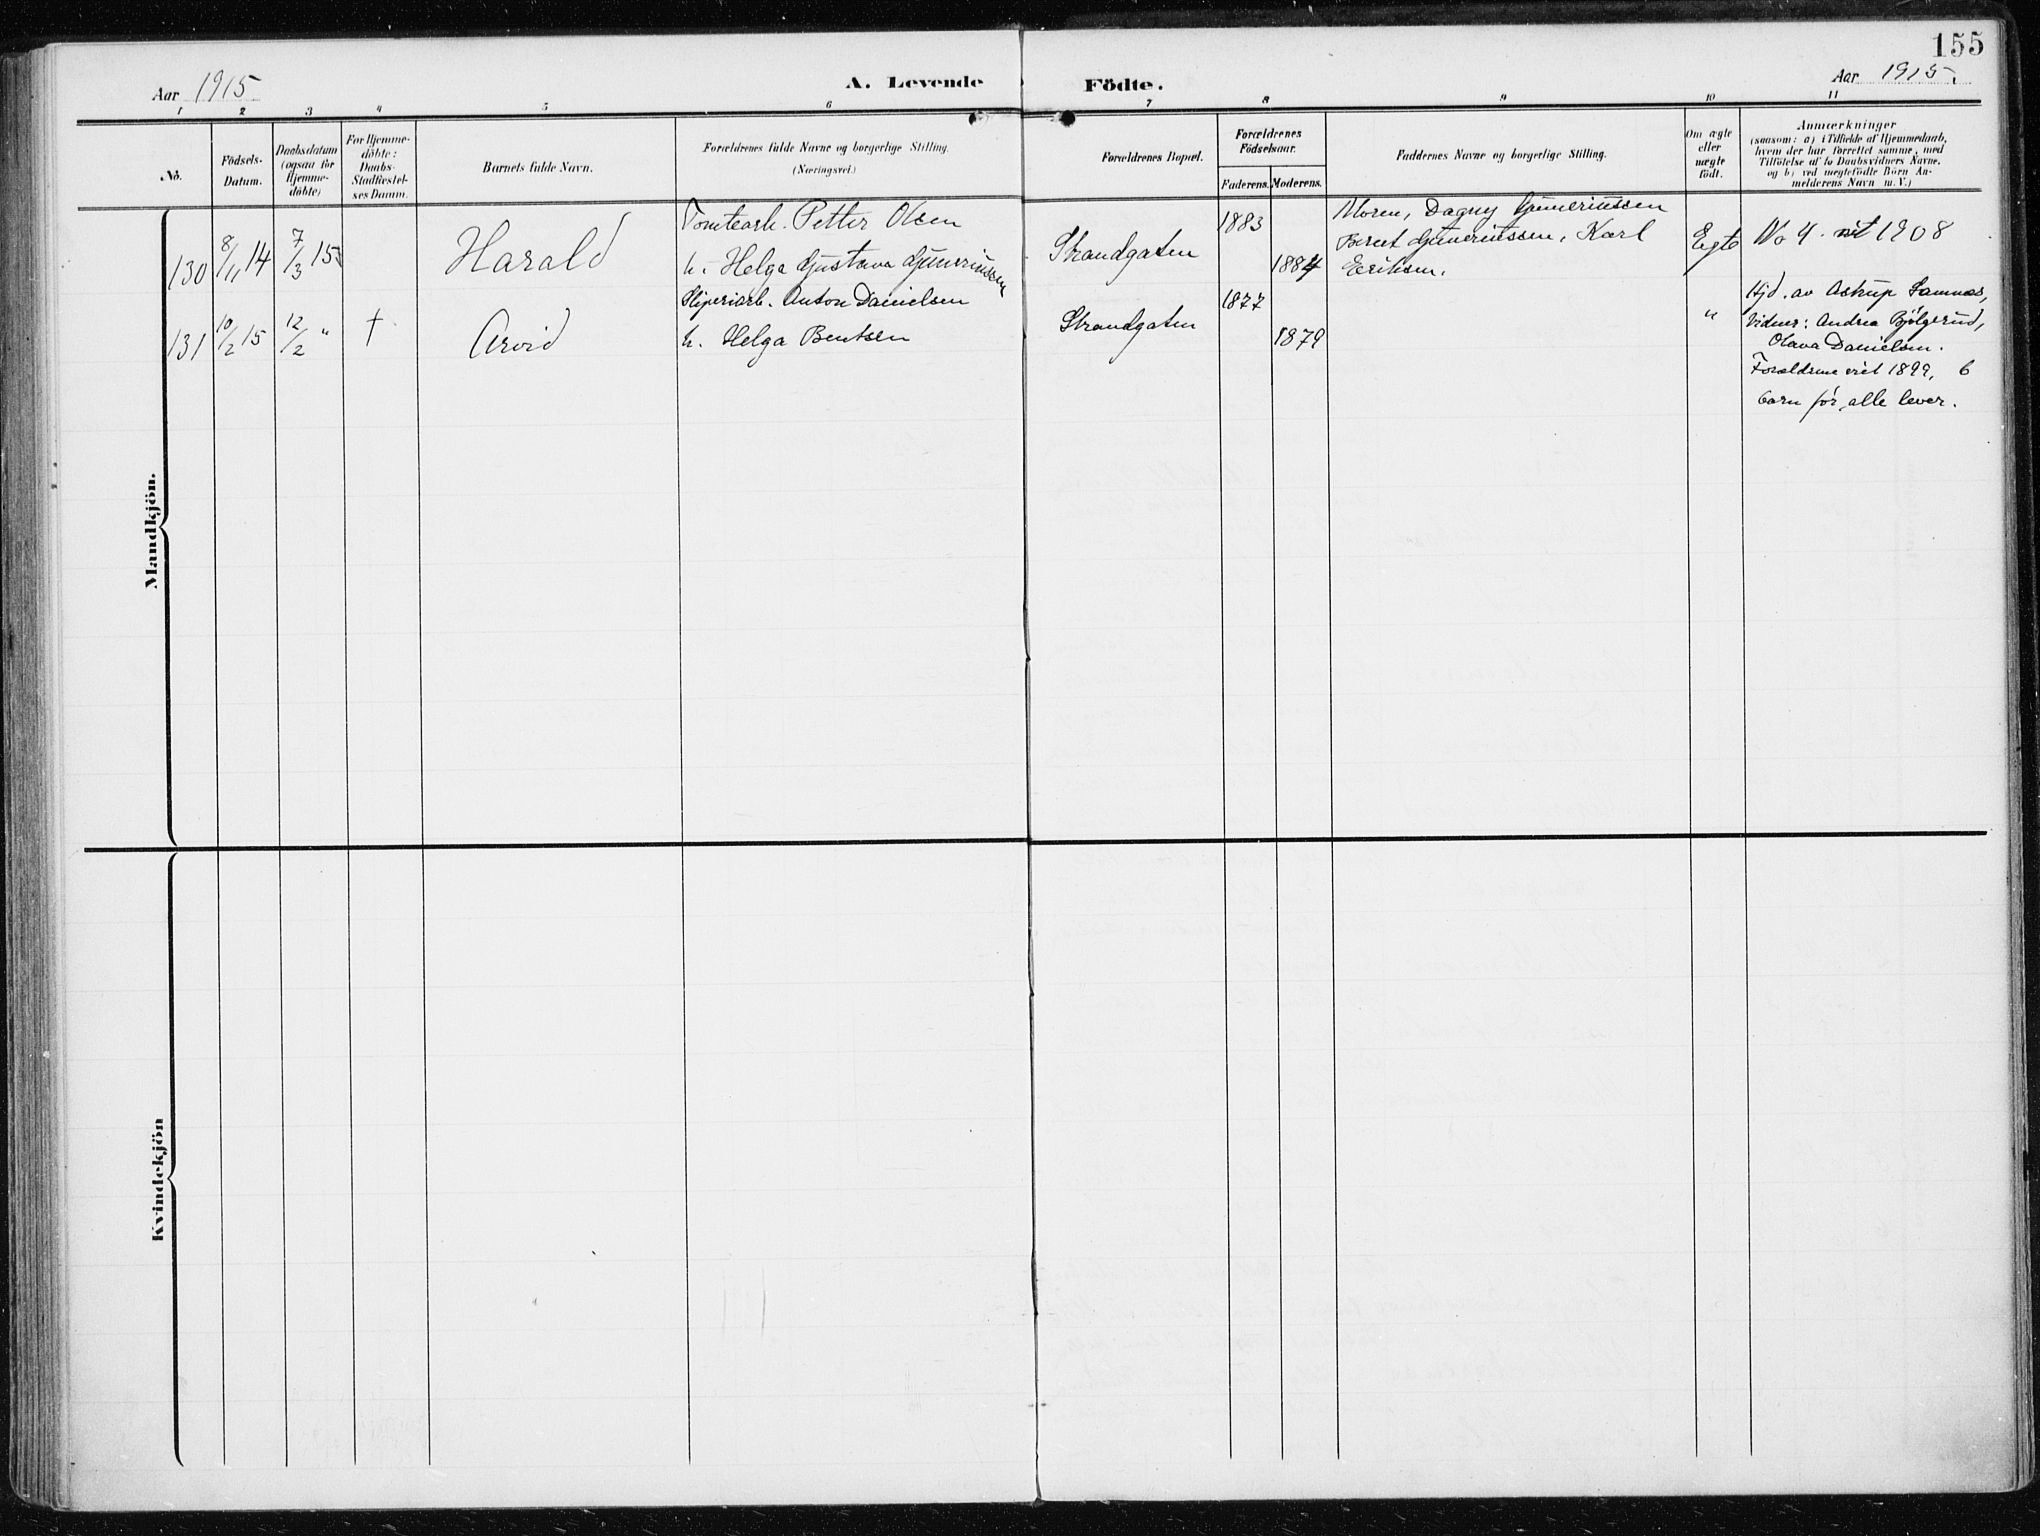 155
Aar 1915
A. Levende Födte.
Aar 1915.
1 2 3 4 5 6 7 8 9 10 11
No.
Födsels-
Datum.
Daabsdatum
(ogsaa for
Hjemme-
döbte)
For Hjemme-
döbte:
Daabs-
Stadfæstel-
ses Datum.
Barnets fulde Navn.
Forældrenes fulde Navne og borgerlige Stilling.
(Næringsvei.)
Forældrenes Bopæl.
Forældrenes
Födselsaar.
Faderens. Moderens.
Faddernes Navne og borgerlige Stilling.
Om ægte
eller
uægte
födt.
Anmærkninger
(saasom: a) i Tilfælde af Hjemmedaab,
hvem der har forrettet samme, med
Tilföielse af to Daabsvidners Navne,
og b) ved uægtefödte Börn An-
melderens Navn m. V.)
Mandkjön.
130 8/11 14 7/3 15 Harald
Tomtearb. Petter Olsen
h. Helga Gustava Guneriussen
Strandgaten
1883
1884
Moren, Dagny Guneriussen
Berut Guneriussen, Karl
Eriksen.
Egte
No 4. 1908
131 10/2 15 12/2 " † Arvid
Sliperiarb. Anton Danielsen
h. Helga Bentsen
Strandgaten
1877
1879
"
Hjd. av Astrup Samnæs,
Vidner: Andrea Bjölgerud,
Olava Danielsen.
Forældrene viet 1899, 6
barn før, alle lever.
Kvindekjön